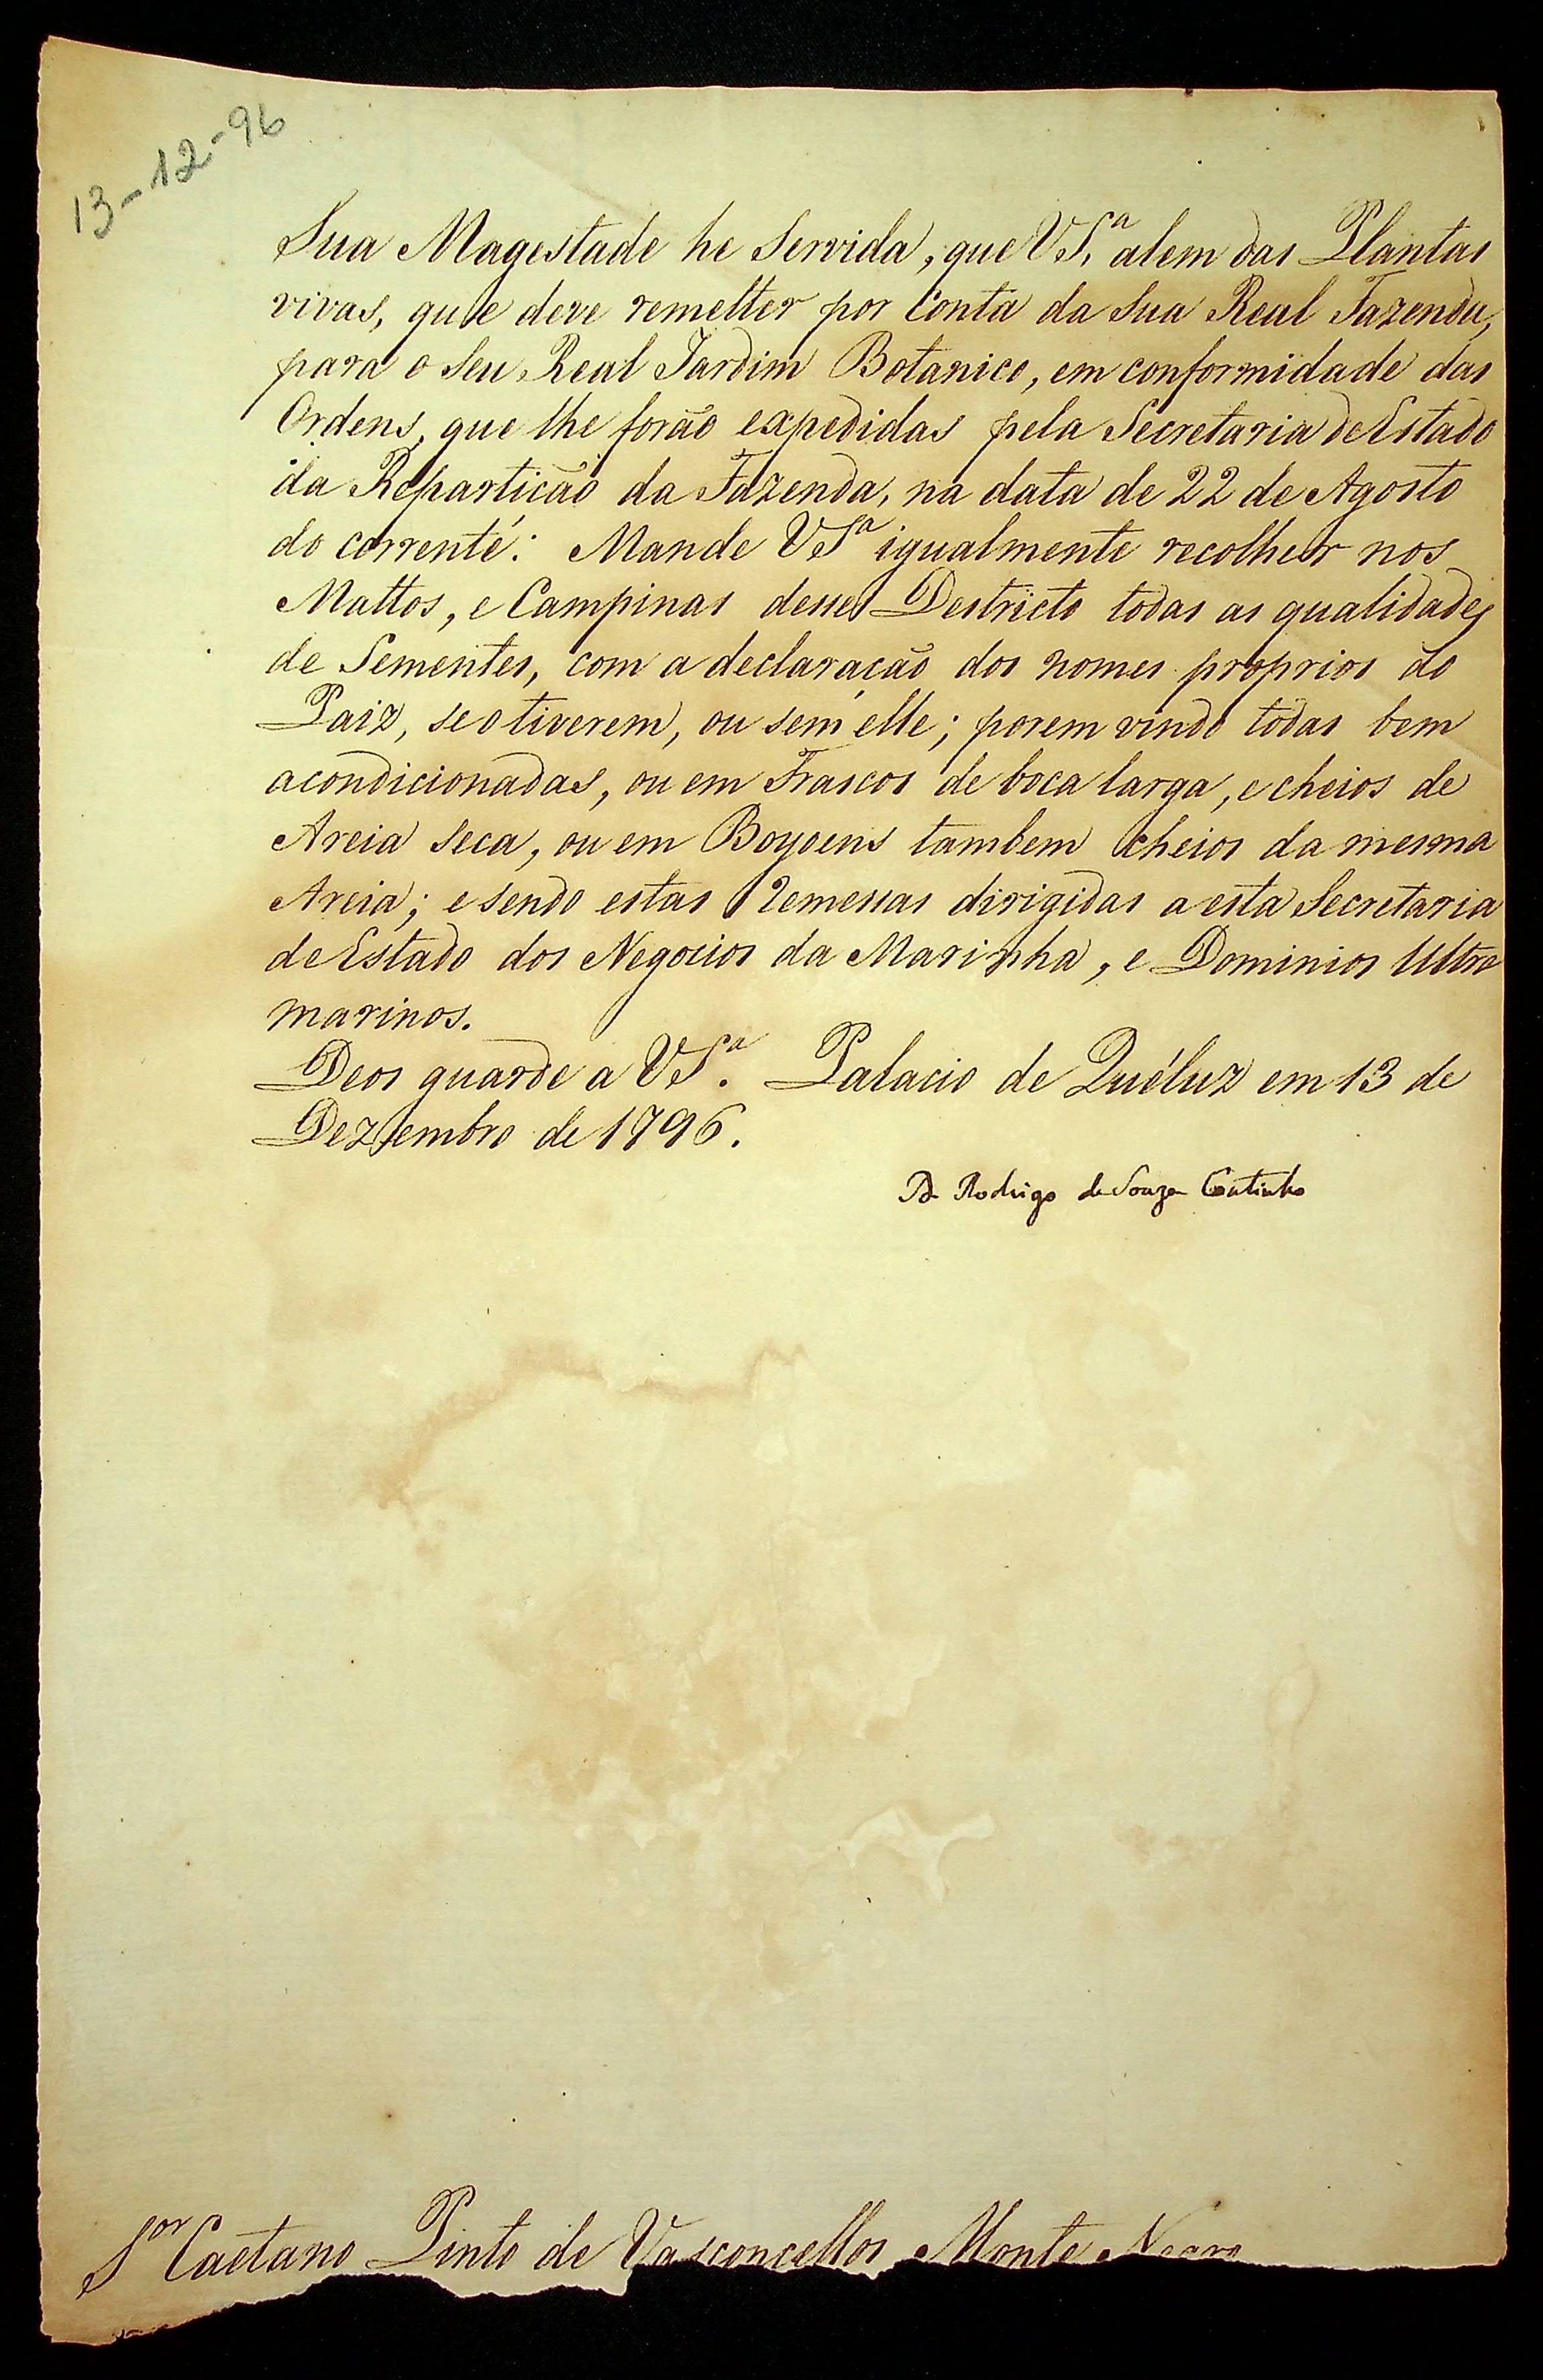 13-12-96
Sua Magestade he Servida, que VSª alem das Plantas
vivas, que deve remetter por Conta da Sua Real Fazenda,
para o Seu Real Jardim Botanico, em conformidade das
Ordens, que lhe forão expedidas pela Secretaria de Estado
da Repartição da Fazenda, na data de 22 de Agosto
do corrente: Mande VSª igualmente recolher nos
Mattos, e Campinas desse Destricto todas as qualidades
de Sementes, com a declaração dos nomes proprios do
Paiz, se o tiverem, ou sem elle; porem vindo todas bem
acondicionadas, ou em Frascos de boca larga, e cheios de
Areia Seca, ou em Boyoens tambem cheios da mesma
Areia; e sendo estas Remessas dirigidas a esta Secretaria
de Estado dos Negocios da Marinha, e Dominios Ultra
marinos.
Deos guarde a VSª. Palacio de Quéluz em 13 de
Dezembro de 1796.
D. Rodrigo de Souza Coutinho
Sor Caetano Pinto de Vasconcellos Monte Negro